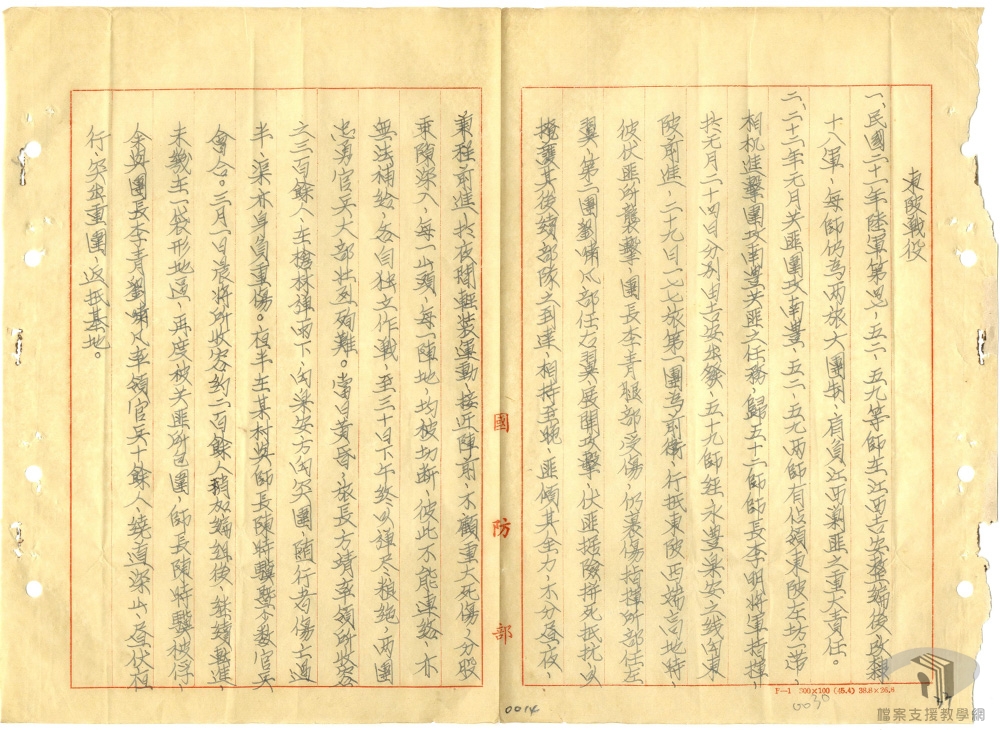 東陂戰役
一、民國二十一年陸軍第四、五二、五九等師在江西吉安整編後改隸
十八軍、每師仍為兩旅六團制、有負江西剿匪之重大責任。
二、二十二年元月共匪圍攻南豐、五二、五九兩師有佔領東陂左坊一帶、
相机進擊圍攻南豐共匪之任務、歸五十二師師長李明將軍指揮、
於元月二十四日分別由吉安出發、五十九師經永豐樂安之线向東
陂前進、二十九日一七七旅第一團為前衛、行抵東陂西端高地時、
彼伏匪所襲擊、團長李青腿部受傷、仍裹傷指揮所部任左
翼、第二團劉嘯凡部任右翼、展開攻擊、伏匪据險拼死抵抗以
掩護其後續部隊之到達、相持至晚、匪傾其全力、不分昼夜、
兼程前進、於夜間輕裝運動、接近陣前、不顧重大死傷、分股
乘隙深入、每一山頭、每一陣地、均被切斷、彼此不能連絡、亦
無法補給、各自独立作戰、至三十日下午終以彈尽粮絶、兩團
忠勇官兵大部壯烈殉難。當日黃昏、旅長方靖率領所收容
之三百餘人、在槍林彈雨下、向樂安方向突圍、随行者傷亡過
半、渠亦身負重傷。夜半在某村與師長陳時驥暨少数官兵
會合。三月一日晨將所收容約二百餘人稍加編組後、继續轉進、
未幾在一袋形地區、再度被共匪所包圍、師長陳時驥被俘、
余與團長李青劉嘯凡率領官兵十餘人、繞道深山、昼伏夜
行、突出重圍、返抵基地。
國防部
F—1 300×100 (45.4) 38.8×26.6
0030
0014
檔案支援教學網